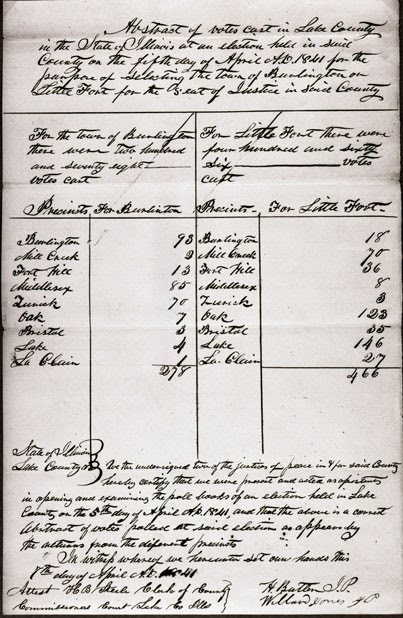 Abstract of votes cast in Lake County
in the State of Illinois at an election held in said
County on the fifth day of April A.D. 1841 for the
purpose of Selecting the town of Burlington or
Little Fort for the Seat of Justice in said County
For the town of Burlington
there were two hundred
and seventy eight
votes cast
For Little Fort there were
four hundred and sixty
six votes
cast
Precincts For Burlinton Precincts For Little Fort
Burlington 93 Burlington 18
Mill Creek 2 Mill Creek 70
Fort Hill 13 Fort Hill 36
Middlesex 85 Middlesex 8
Zurick 70 Zurick 3
Oak 7 Oak 123
Bristol 3 Bristol 35
Lake 4 Lake 146
La Clain 1 La Clain 27
278 466
State of Illinois
Lake County
We the undersigned two of the justices of peace in & for said County
hereby certify that we were present and acted as
in opening and examining the poll books of an election held in Lake
County on the 5th day of April A.D. 1841, and that the above is a correct
Abstract of votes polled at said election as appears by
the returns from the different precincts
In witness whereof we hereunto set our hands this
7th day of April A.D. 1841
Attest H B Steele Clerk of County
Commissioners Court Lake Co Ills
H. Butler J.P.
Willard Jones J P